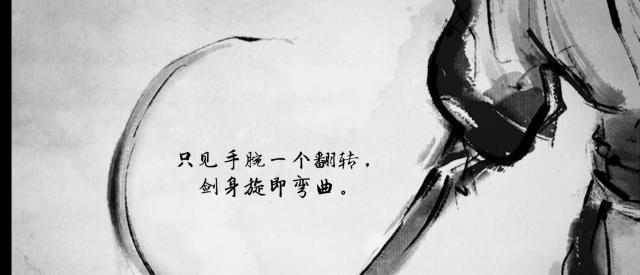 只见手腕一个翻转，
剑身旋即弯曲。